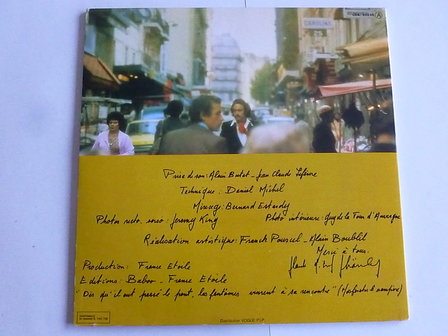 CAROLINE
Prise de son: Alain Butet - Jean Claude Lefèvre
Technique: Daniel Michel
Mixage Bernard Estardy
Photos recto, verso: Jeremy King
Photo intérieure: Guy de la Tour d'Auvergne
Réalisation artistique: Franck Pourcel - Alain Boublil
Merci à tous.
Production: France Etoile
Editions: Baboo - France Etoile
"Dès qu'il eut passé le pont, les fantômes vinrent à sa rencontre" (Nosferatu le vampire)
Distribution VOGUE P.I.P.